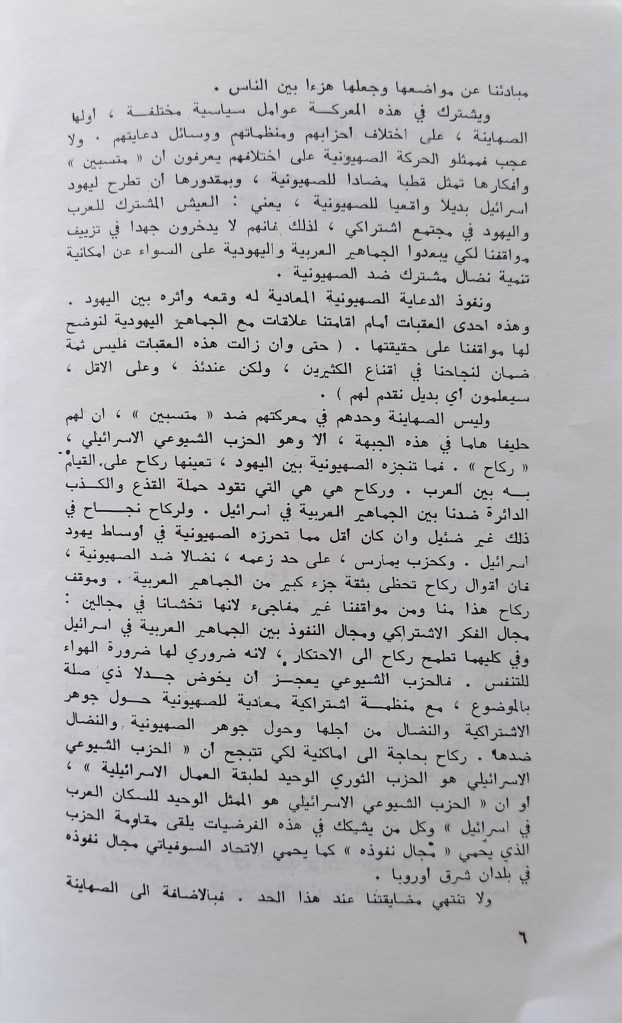 مبادئنا عن مواضعها وجعلها هزءا بين الناس .
ويشترك في هذه المعركـة عوامل سياسية مختلفـة ، أولها
الصهاينة ، على اختلاف أحزابهم ومنظماتهم ووسائل دعايتهم . ولا
عجب فممثلو الحركة الصهيونية على اختلافهم يعرفون أن « متسبين »
وأفكارها تمثل قطبا مضادا للصهيونية ، وبمقدورها أن تطرح ليهود
اسرائيل بديلا واقعيا للصهيونية ، يعني : العيش المشترك للعرب
واليهود في مجتمع اشتراكي ، لذلك فانهم لا يدخرون جهدا في تزييف
مواقفنا لكي يبعدوا الجماهير العربية واليهودية على السواء عن امكانية
تنمية نضال مشترك ضد الصهيونية .
ونفوذ الدعاية الصهيونية المعادية له وقعه وأثره بين اليهود .
وهذه احدى العقبات أمام اقامتنا علاقات مع الجماهير اليهودية لنوضح
لها مواقفنا على حقيقتها . ( حتى وان زالت هذه العقبات فليس ثمة
ضمان لنجاحنا في اقناع الكثيرين ، ولكن عندئذ ، وعلى الاقل ،
سيعلمون أي بديل نقدم لهم ) .
وليس الصهاينة وحدهم في معركتهم ضد « متسبين » ، ان لهم
حليفا هاما في هذه الجبهة ، ألا وهو الحزب الشيوعي الاسرائيلي ،
« ركاح » . فما تنجزه الصهيونية بين اليهود ، تعينها ركاح على القيام
بـه بين العرب . وركاح هي هي التي تقود حملة القذع والكـذب
الدائرة ضدنا بين الجماهير العربية في اسرائيل . ولركاح نجـاح في
ذلك غير ضئيل وان كان أقل مما تحرزه الصهيونية في أوساط يهود
اسرائيل . وكحزب يمارس ، على حد زعمه ، نضالا ضد الصهيونية ،
فان أقوال ركاح تحظى بثقة جزء كبير من الجماهير العربية . وموقف
ركاح هذا منا ومن مواقفنا غير مفاجىء لانها تخشانا في مجالين :
مجال الفكر الاشتراكي ومجال النفوذ بين الجماهير العربية في اسرائيل
وفي كليهما تطمح ركاح الى الاحتكار ، لانه ضروري لها ضرورة الهواء
للتنفس . فالحزب الشيوعي يعجـز أن يخوض جـدلا ذي صلة
بالموضوع ، مع منظمـة اشتراكية معادية للصهيونية حـول جوهر
الاشتراكية والنضال من أجلها وحول جوهر الصهيونية والنضال
ضدها . ركاح بحاجة الى اماكنية لكي تتبجح أن « الحزب الشيوعي
الاسرائيلي هو الحزب الثوري الوحيد لطبقة العمال الاسرائيلية » ،
أو ان « الحزب الشيوعي الاسرائيلي هو الممثل الوحيد للسكان العرب
في اسرائيل » وكل من يشكك في هذه الفرضيات يلقى مقاومة الحزب
الذي يحمي « مجال نفوذه » كما يحمي الاتحاد السوفياتي مجال نفوذه
في بلدان شرق أوروبا .
ولا تنتهي مضايقتنا عند هذا الحد . فبالاضافة الى الصهاينة
٦